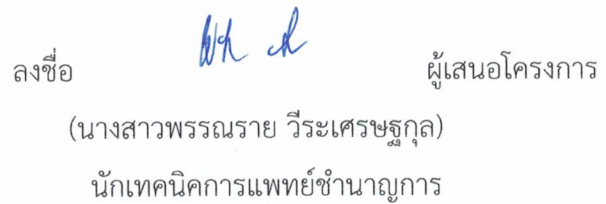 ลงชื่อ ผู้เสนอโครงการ
(นางสาวพรรณราย วีระเศรษฐกุล)
นักเทคนิคการแพทย์ชำนาญการ